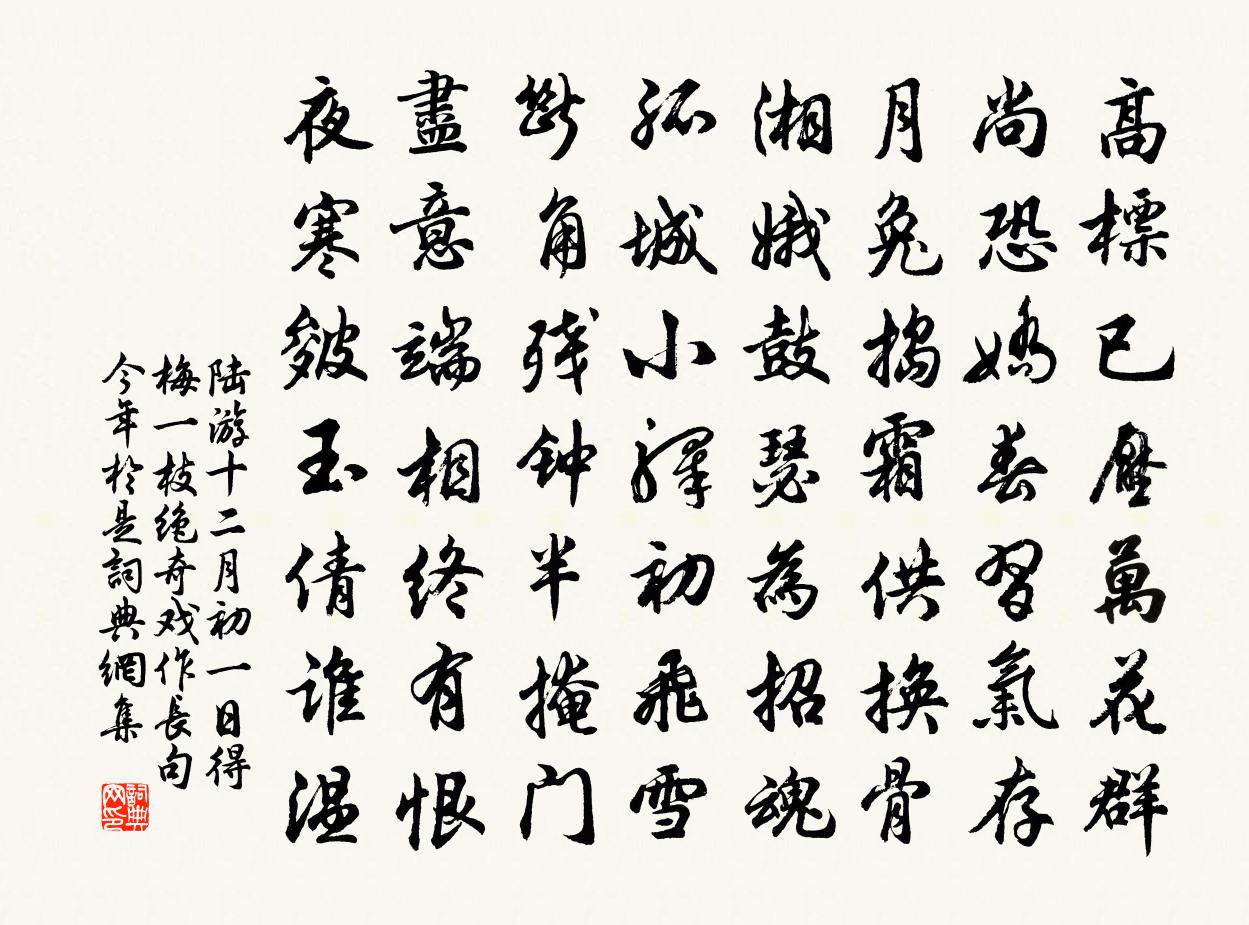 高標已壓萬花群
尚恐嬌春習氣存
月兔搗霜供換骨
湘娥鼓瑟為招魂
孤城小驛初飛雪
斷角殘钟半掩门
盡意端相終有恨
夜寒皴玉倩谁溫
陆游十二月初一日得
梅一枝绝奇戏作長句
今年於是詞典網集
詞典网印